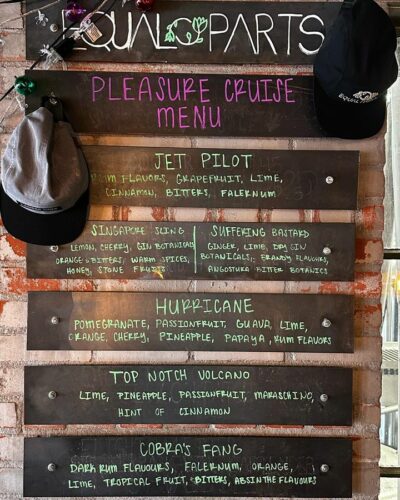 EQUAL PARTS
PLEASURE CRUISE
MENU
JET PILOT
RUM FLAVORS, GRAPEFRUIT, LIME,
CINNAMON, BITTERS, FALERNUM
SINGAPORE SLING
LEMON, CHERRY, GIN BOTANICALS
ORANGE BITTERS, WARM SPICES,
HONEY, STONE FRUITS
SUFFERING BASTARD
GINGER, LIME, DRY GIN
BOTANICALS, BRANDY FLAVOURS,
ANGOSTURA BITTER BOTANICS
HURRICANE
POMEGRANATE, PASSIONFRUIT, GUAVA, LIME,
ORANGE, CHERRY, PINEAPPLE, PAPAYA, RUM FLAVORS
TOP NOTCH VOLCANO
LIME, PINEAPPLE, PASSIONFRUIT, MARASCHINO,
HINT OF CINNAMON
COBRA'S FANG
DARK RUM FLAVOURS, FALERNUM, ORANGE,
LIME, TROPICAL FRUIT, BITTERS, ABSINTHE FLAVOURS